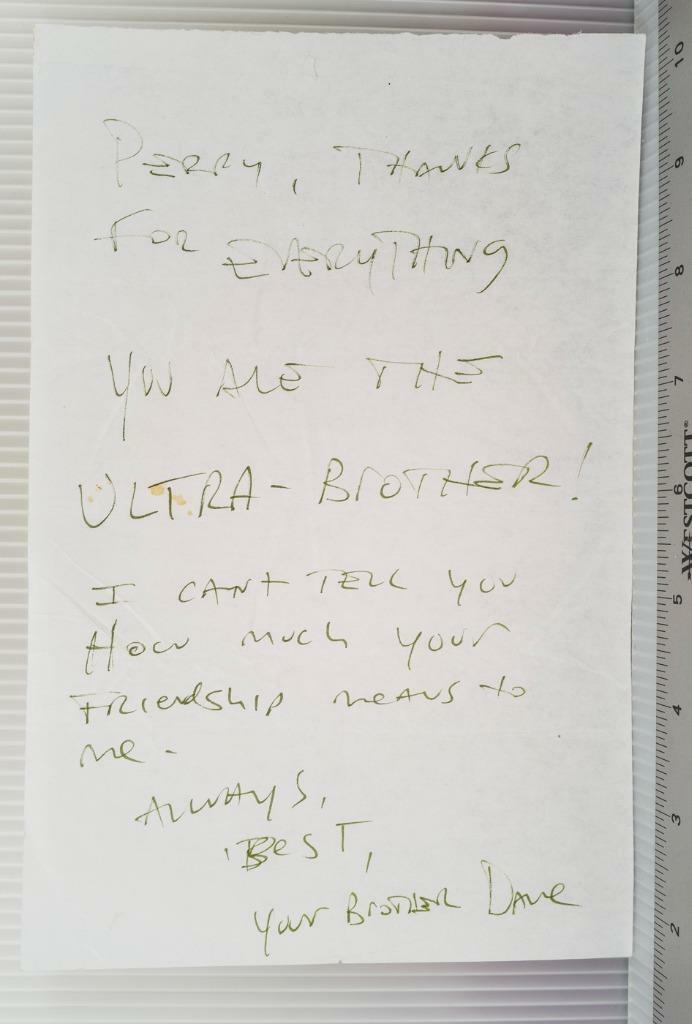 PERRY, THANKS
FOR EVERYTHING
YOU ARE THE
ULTRA-BROTHER!
I CAN'T TELL YOU
HOW MUCH YOUR
FRIENDSHIP MEANS to
me.
ALWAYS,
BEST,
YOUR BROTHER DAVE
10
9
8
7
6
5
4
3
2
WESTCOTT®